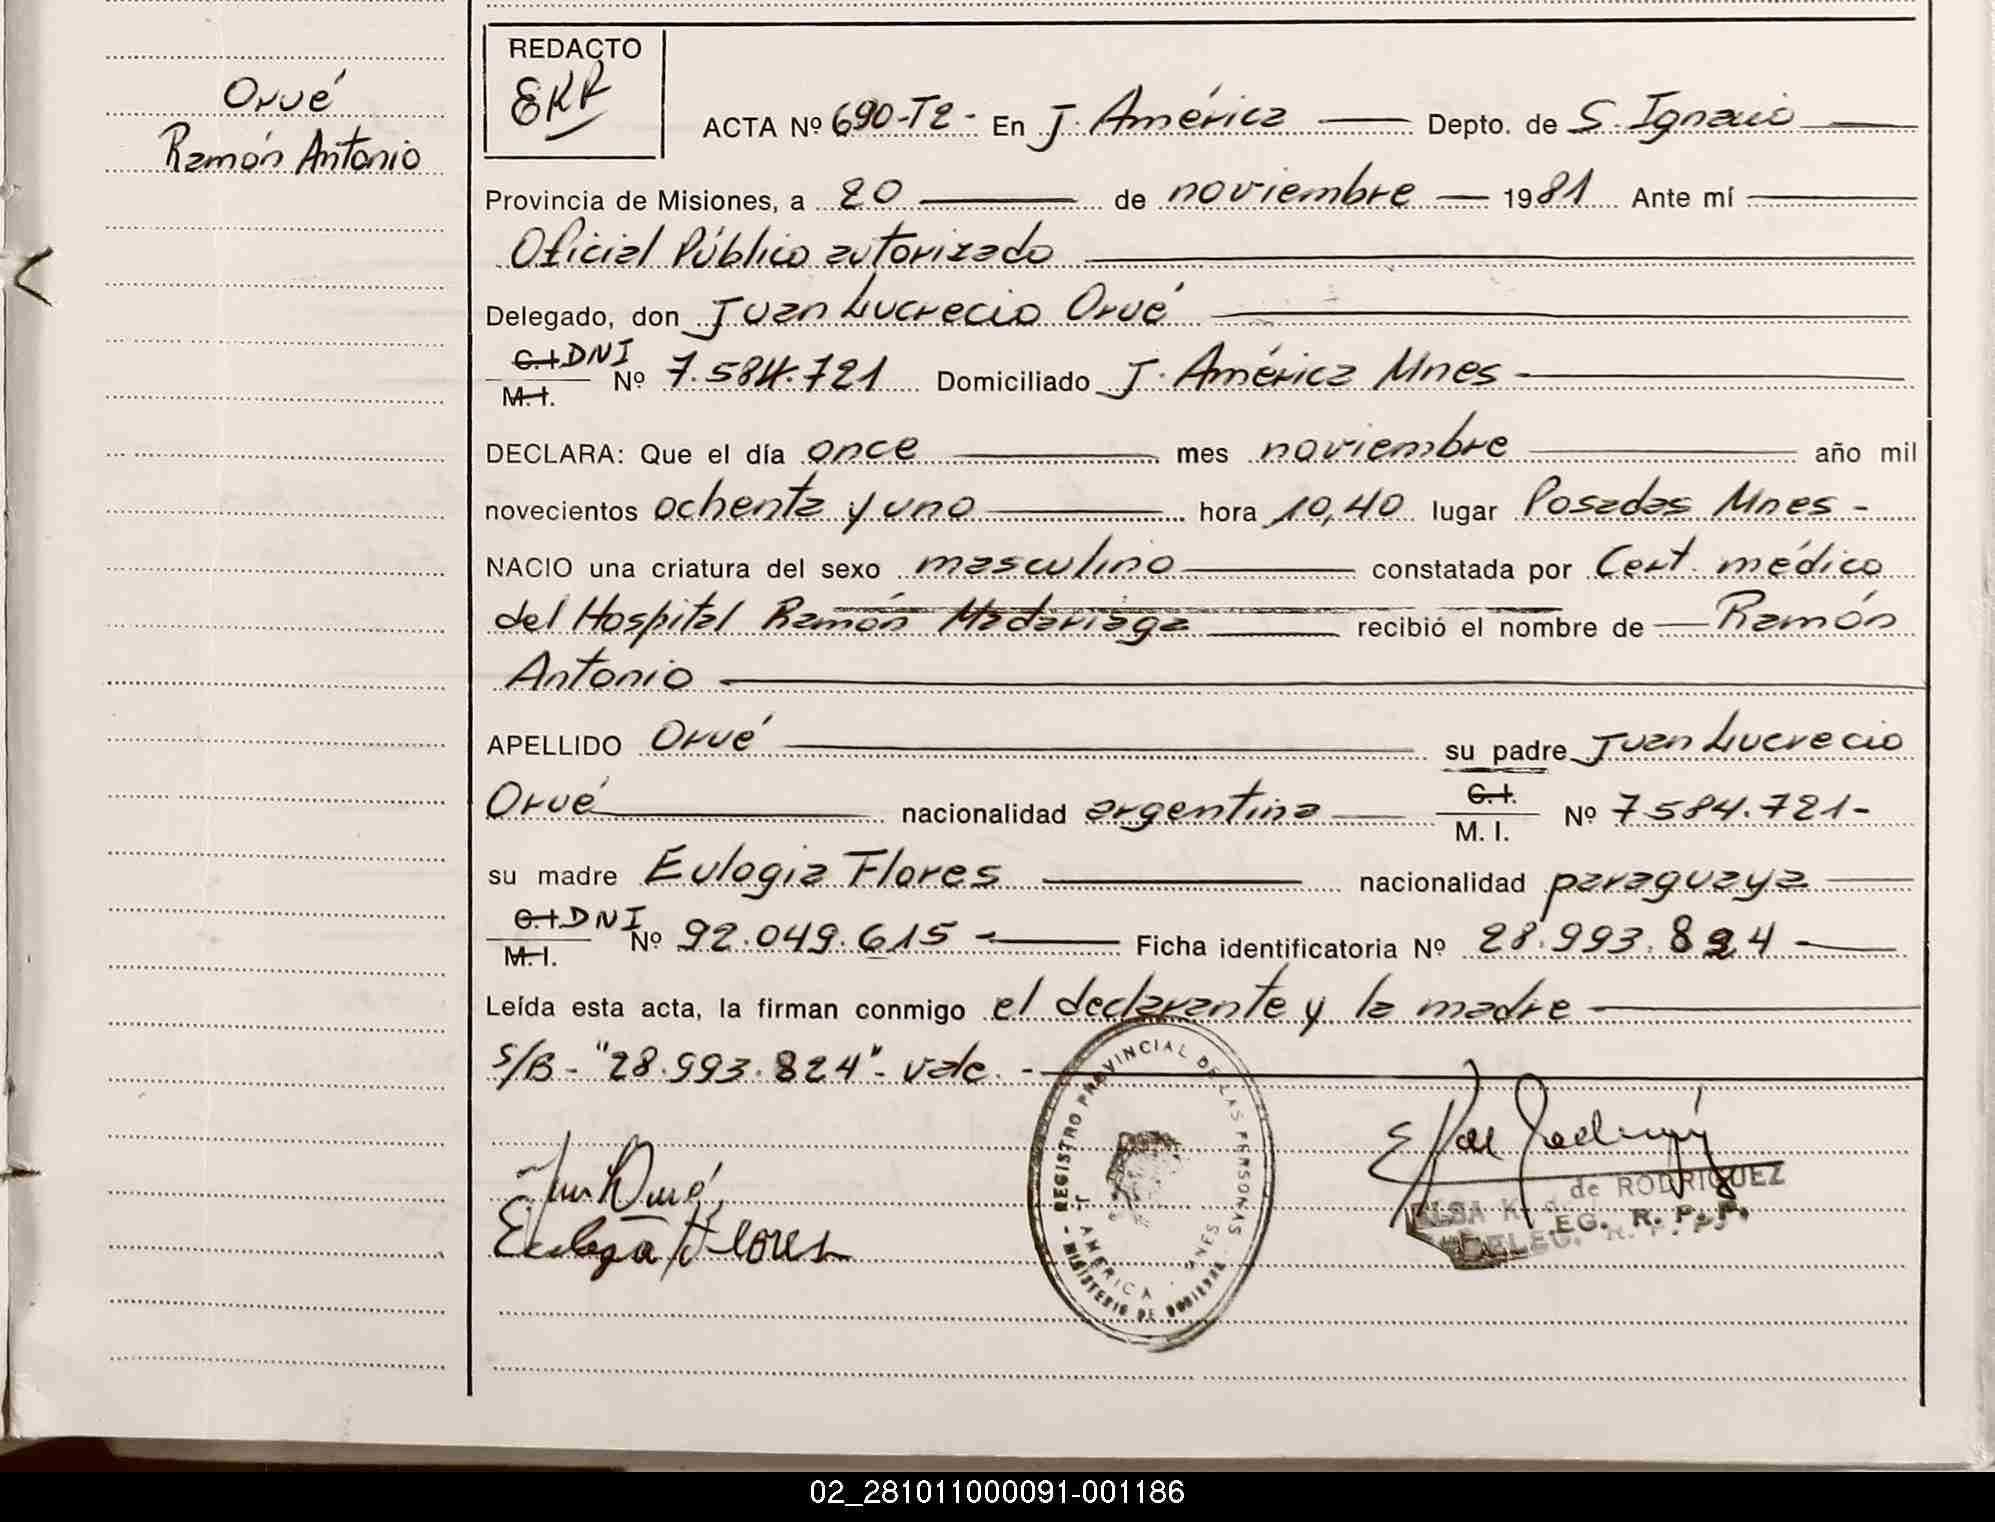 Orué
Ramón Antonio
REDACTO
EKR
ACTA Nº 690-T2- En J. América Depto. de S. Ignacio
Provincia de Misiones, a 20 de noviembre 1981 Ante mí
Oficial Público autorizado
Delegado, don Juan Lucrecio Orué
C.I. DNI
M.I. Nº 7.584.721 Domiciliado J. América Mnes
DECLARA: Que el día once mes noviembre año mil
novecientos ochenta y uno hora 10,40 lugar Posadas Mnes -
NACIO una criatura del sexo masculino constatada por Cert. médico
del Hospital Ramón Madariaga recibió el nombre de Ramón
Antonio
APELLIDO Orué su padre Juan Lucrecio
Orué nacionalidad argentina C.I.
M. I. Nº 7584.721-
su madre Eulogia Flores nacionalidad paraguaya
C.I. DNI
M.I. Nº 92.049.615 - Ficha identificatoria Nº 28.993.824 -
Leída esta acta, la firman conmigo el declarante y la madre
S/B - "28.993.824" - vale. -
REGISTRO PROVINCIAL DE LAS PERSONAS
J. AMERICA - MNES
- MINISTERIO DE GOBIERNO -
Juan Orué
Eulogia Flores
de RODRIGUEZ
R. P. P.
02_281011000091-001186